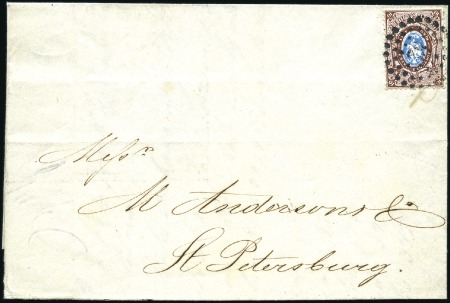 Messrs.
M Andersons &
St Petersburg.